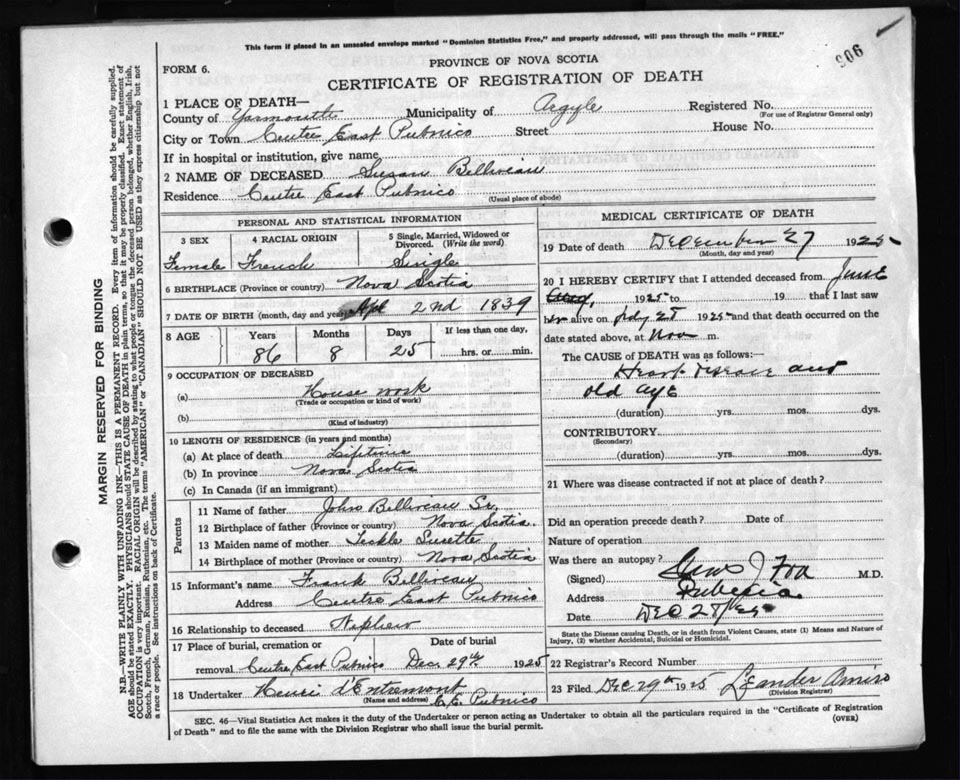 This form if placed in an unsealed envelope marked "Dominion Statistics Free," and properly addressed, will pass through the mails "FREE."
906
FORM 6.
PROVINCE OF NOVA SCOTIA
CERTIFICATE OF REGISTRATION OF DEATH
1 PLACE OF DEATH—
County of Yarmouth Municipality of Argyle Registered No.
(For use of Registrar General only)
City or Town Centre East Pubnico Street House No.
If in hospital or institution, give name
2 NAME OF DECEASED Susan Belliveau
Residence Centre East Pubnico
(Usual place of abode)
PERSONAL AND STATISTICAL INFORMATION
3 SEX 4 RACIAL ORIGIN 5 Single, Married, Widowed or Divorced. (Write the word)
Female French Single
6 BIRTHPLACE (Province or country) Nova Scotia
7 DATE OF BIRTH (month, day and year) Apl 2nd 1839
8 AGE Years Months Days If less than one day,
86 8 25 hrs. or min.
9 OCCUPATION OF DECEASED
(a) House work
(Trade or occupation or kind of work)
(b)
(Kind of industry)
10 LENGTH OF RESIDENCE (in years and months)
(a) At place of death Lifetime
(b) In province Nova Scotia
(c) In Canada (if an immigrant)
Parents
11 Name of father John Belliveau Sr.
12 Birthplace of father (Province or country) Nova Scotia.
13 Maiden name of mother Surette
14 Birthplace of mother (Province or country) Nova Scotia
15 Informant's name Frank Belliveau
Address Centre East Pubnico
16 Relationship to deceased Nephew
17 Place of burial, cremation or Date of burial
removal Centre East Pubnico Dec. 29th 1925
18 Undertaker Henri d'Entremont
(Name and address) C. E. Pubnico
MEDICAL CERTIFICATE OF DEATH
19 Date of death December 27 1925
(Month, day and year)
20 I HEREBY CERTIFY that I attended deceased from June
1925 to 19 that I last saw
her alive on July 28 1925 and that death occurred on the
date stated above, at Noon m.
The CAUSE of DEATH was as follows:
Heart disease and
old age
(duration) yrs. mos. dys.
CONTRIBUTORY
(Secondary)
(duration) yrs. mos. dys.
21 Where was disease contracted if not at place of death?
Did an operation precede death? Date of
Nature of operation
Was there an autopsy?
(Signed) J Fox M.D.
Address Pubnico
Date Dec 28/25
State the Disease causing Death, or in death from Violent Causes, state (1) Means and Nature of
Injury, (2) whether Accidental, Suicidal or Homicidal.
22 Registrar's Record Number
23 Filed Dec 29th 1925 Leander Amiro
(Division Registrar)
SEC. 46—Vital Statistics Act makes it the duty of the Undertaker or person acting as Undertaker to obtain all the particulars required in the "Certificate of Registration
of Death" and to file the same with the Division Registrar who shall issue the burial permit.
(OVER)
MARGIN RESERVED FOR BINDING
N.B.—WRITE PLAINLY WITH UNFADING INK—THIS IS A PERMANENT RECORD. Every item of information should be carefully supplied.
AGE should be stated EXACTLY. PHYSICIANS should STATE CAUSE OF DEATH in plain terms, so that it may be properly classified. Exact statement of
OCCUPATION is very important. RACIAL ORIGIN will be described by stating to what people or tongue the deceased person belonged, whether English, Irish,
Scotch, French, German, Russian, Ruthenian, etc. The terms "AMERICAN" or "CANADIAN" SHOULD NOT BE USED as they express citizenship but not
a race or people. See instructions on back of Certificate.